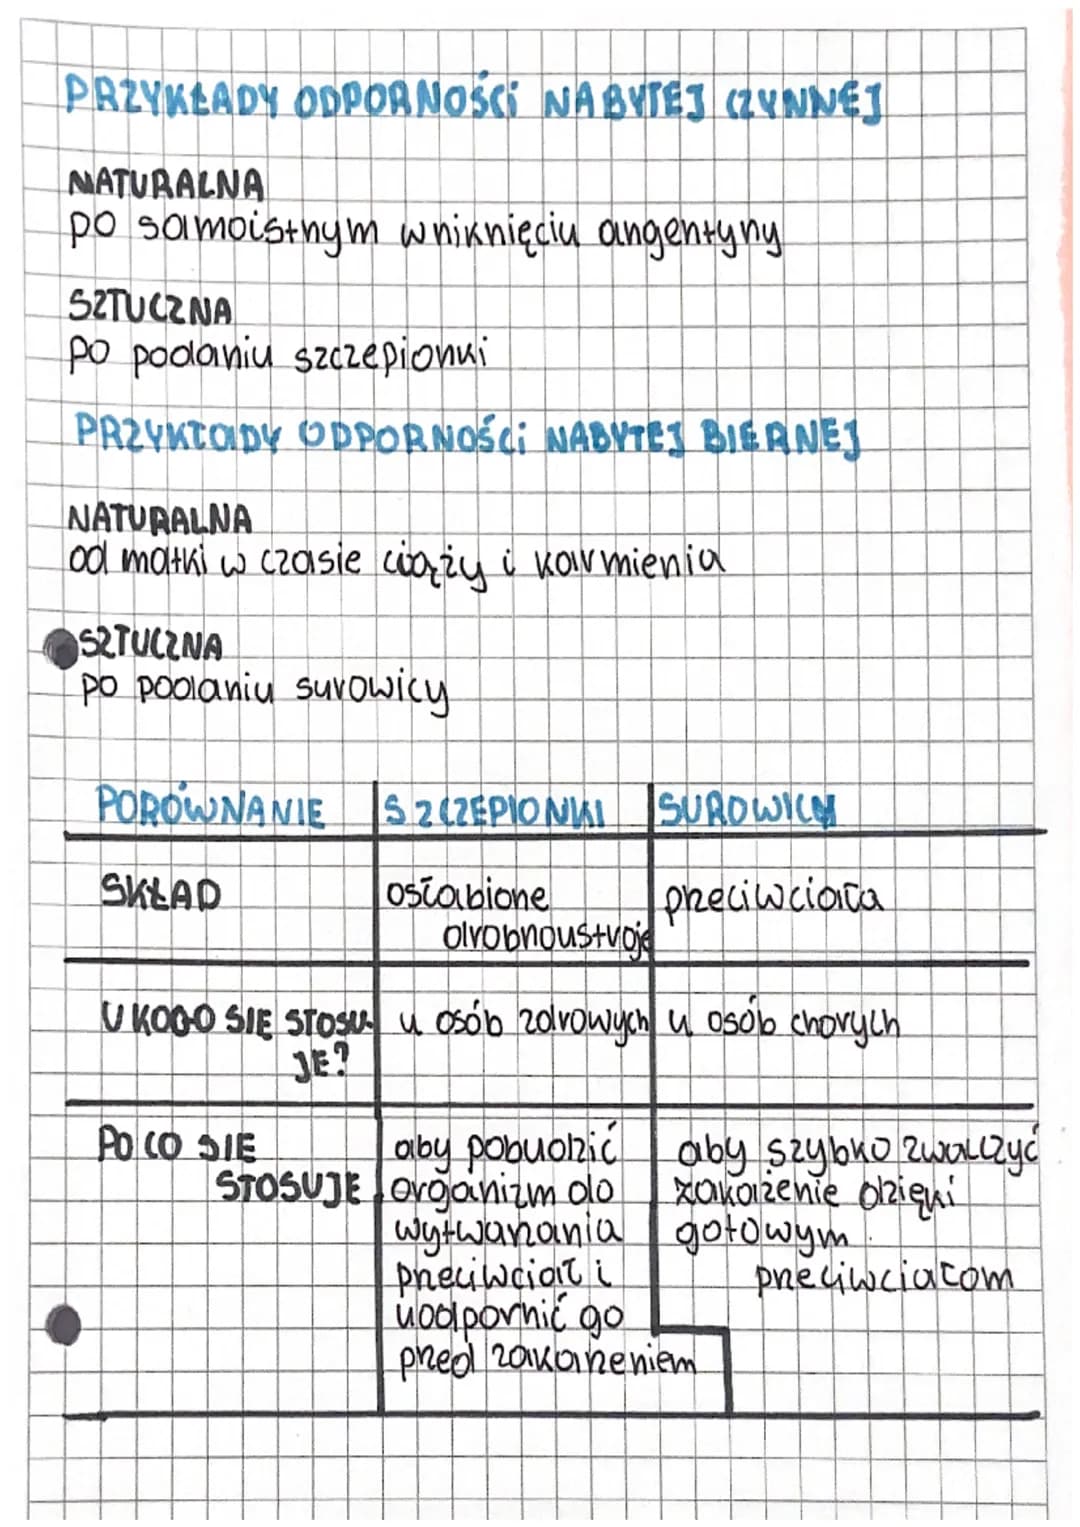 PRZYKŁADY ODPORNOŚCI NABYTEJ CZYNNEJ
NATURALNA
po samoistnym wniknięciu angentyny
SZTUCZNA
po podaniu szczepionki
PRZYKŁADY ODPORNOŚCI NABYTEJ BIERNEJ
NATURALNA
od matki w czasie ciąży i karmienia
SZTUCZNA
po podaniu surowicy
PORÓWNANIE SZCZEPIONKI SUROWICY
SKŁAD osłabione przeciwciała
drobnoustroje
U KOGO SIĘ STOSU- u osób zdrowych u osób chorych
JE?
PO CO SIE aby pobudzić aby szybko zwalczyć
STOSUJE organizm do zakażenie dzięki
wytwarzania gotowym
przeciwciał i przeciwciałom
uodpornić go
przed zakażeniem